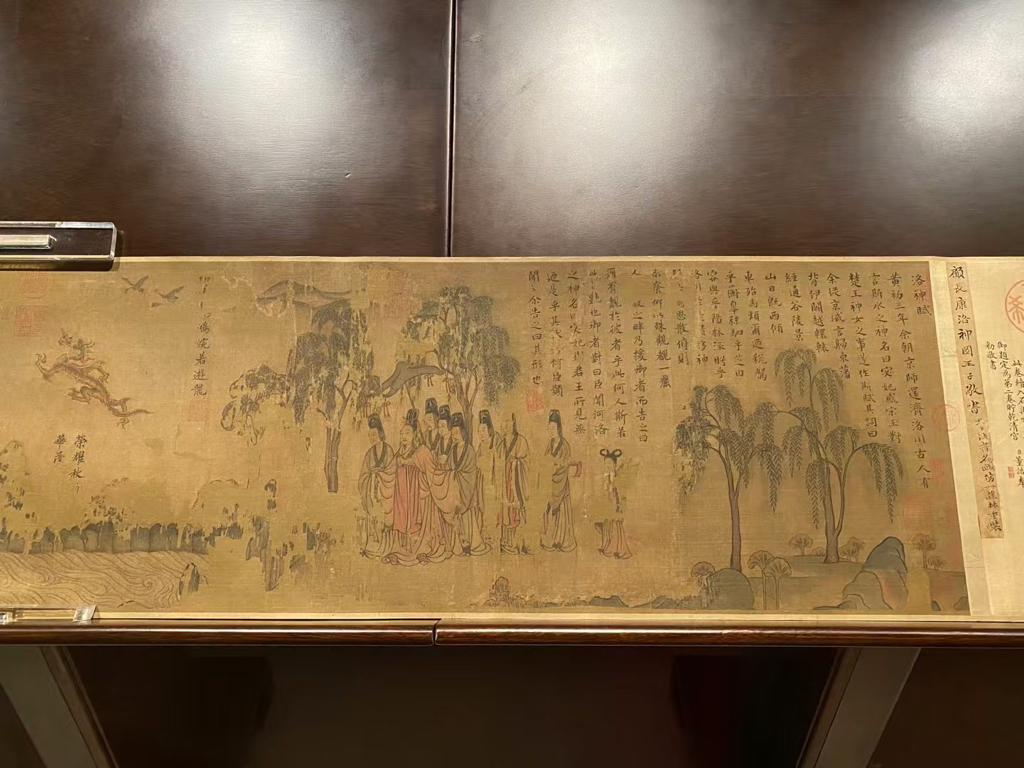 御題定為第一卷貯乾清宮
顧長康洛神圖 王子敬書
洛神賦
黃初三年余朝京師還濟洛川古人有
言斯水之神名曰宓妃感宋玉對
楚王神女之事遂作斯賦其詞曰
余從京域言歸東藩
背伊闕越轘轅
經通谷陵景
山日既西傾
車殆馬煩爾乃稅駕
乎蘅皋秣駟乎芝田
容與乎陽林流眄乎
洛川於是精移神
思散俯則
未察仰以殊觀覩一麗
人 之畔乃援御者而告之曰
爾有覿於彼者乎此何人斯若
此之艷也御者對曰臣聞河洛
之神名曰宓妃則君王所見無
迺是乎其狀若何臣願
聞之余告之曰其形也
婉若遊龍
榮耀秋
華茂